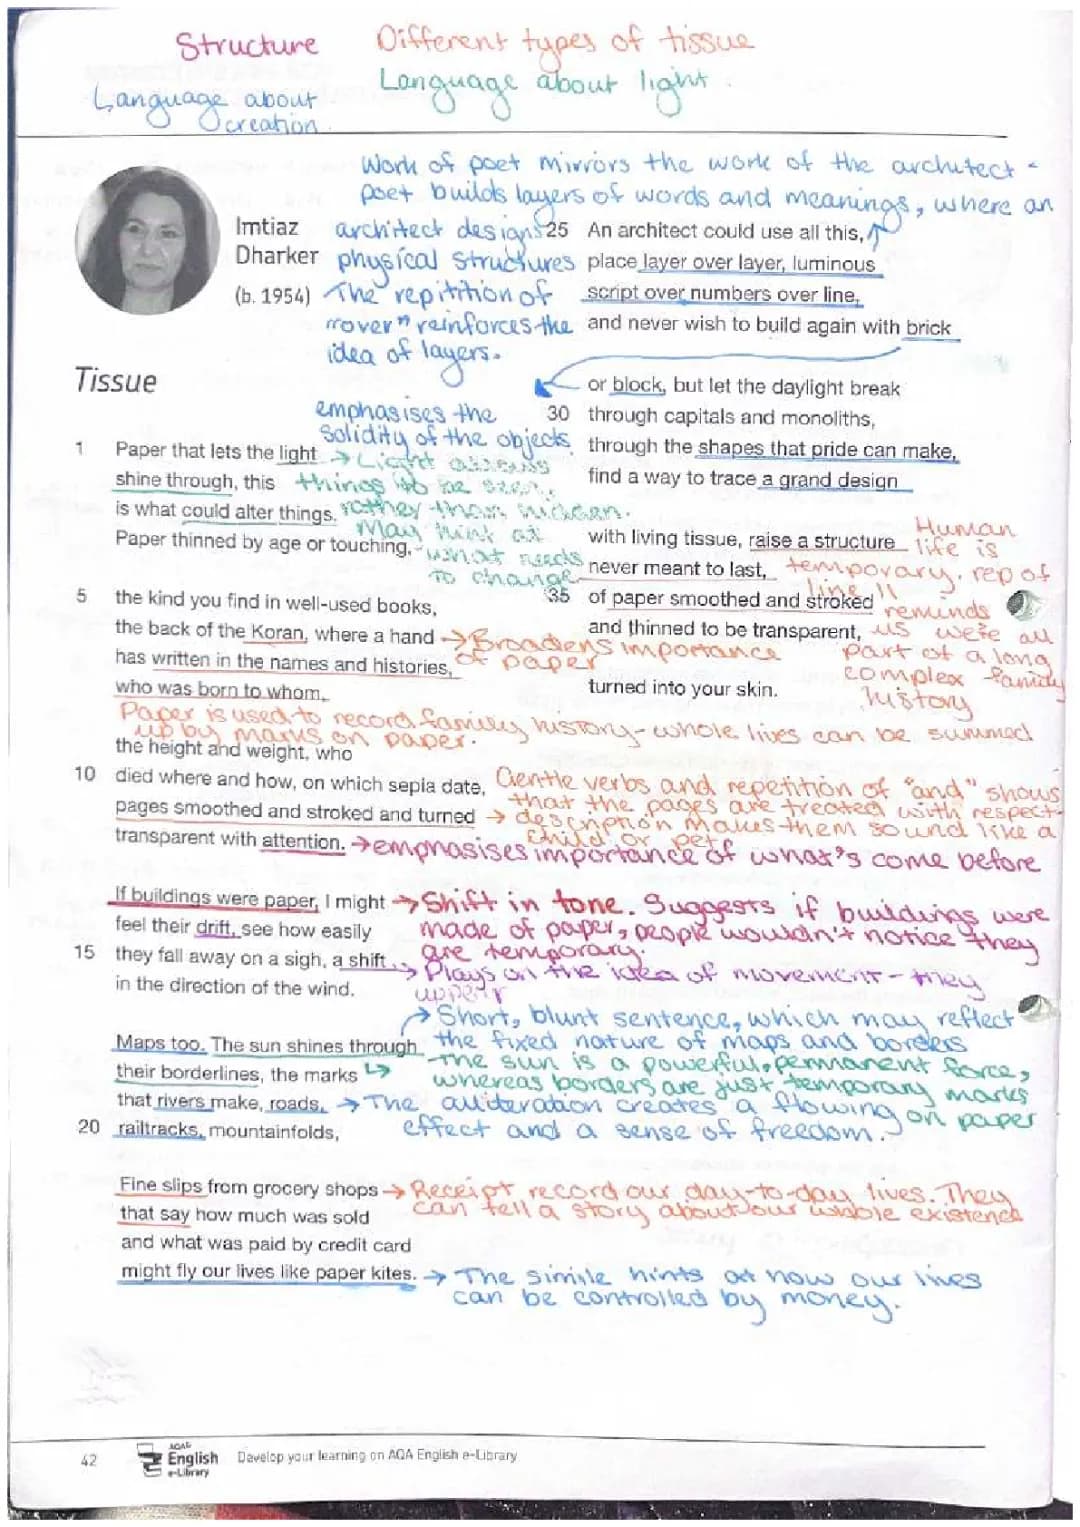 Structure
Different types of tissue
Language about light.
Language about
creation
Work of poet mirrors the work of the architect -
poet builds layers of words and meanings, where an
architect designs
physical structures
The repitition of
"over" reinforces the
idea of layers.
Imtiaz
Dharker
(b. 1954)
Tissue
1 Paper that lets the light
shine through, this
is what could alter things.
Paper thinned by age or touching,
→ Light allows
things to be seen,
rather than hidden.
May hint at
what needs
to change
5 the kind you find in well-used books,
the back of the Koran, where a hand
has written in the names and histories,
who was born to whom,
→ Broadens importance
of paper
Paper is used to record family history - whole lives can be summed
up by marks on paper.
the height and weight, who
10 died where and how, on which sepia date,
pages smoothed and stroked and turned
transparent with attention.
Gentle verbs and repetition of "and" shows
that the pages are treated with respect-
→ description makes them sound like a
child or pet
→ emphasises importance of what's come before
If buildings were paper, I might
feel their drift, see how easily
15 they fall away on a sigh, a shift
in the direction of the wind.
→ Shift in tone. Suggests if buildings were
made of paper, people wouldn't notice they
are temporary.
→ Plays on the idea of movement - they
Maps too. The sun shines through
their borderlines, the marks
that rivers make, roads,
20 railtracks, mountainfolds,
→ Short, blunt sentence, which may reflect
the fixed nature of maps and borders
The sun is a powerful, permanent force,
whereas borders are just temporary marks
on paper
→ The aliteration creates a flowing
effect and a sense of freedom.
Fine slips from grocery shops
that say how much was sold
and what was paid by credit card
might fly our lives like paper kites.
→ Receipt record our day-to-day lives. They
can tell a story about our whole existence
→ The simile hints at how our lives
can be controlled by money.
25 An architect could use all this,
place layer over layer, luminous
script over numbers over line,
and never wish to build again with brick
or block, but let the daylight break
30 through capitals and monoliths,
through the shapes that pride can make,
find a way to trace a grand design
emphasises the
solidity of the objects
with living tissue, raise a structure
never meant to last,
35 of paper smoothed and stroked
and thinned to be transparent,
turned into your skin.
Human
life is
temporary. rep of
line 11
reminds
us we're all
part of a long
complex family
history
42
AQA
English
e-Library
Develop your learning on AQA English e-Library